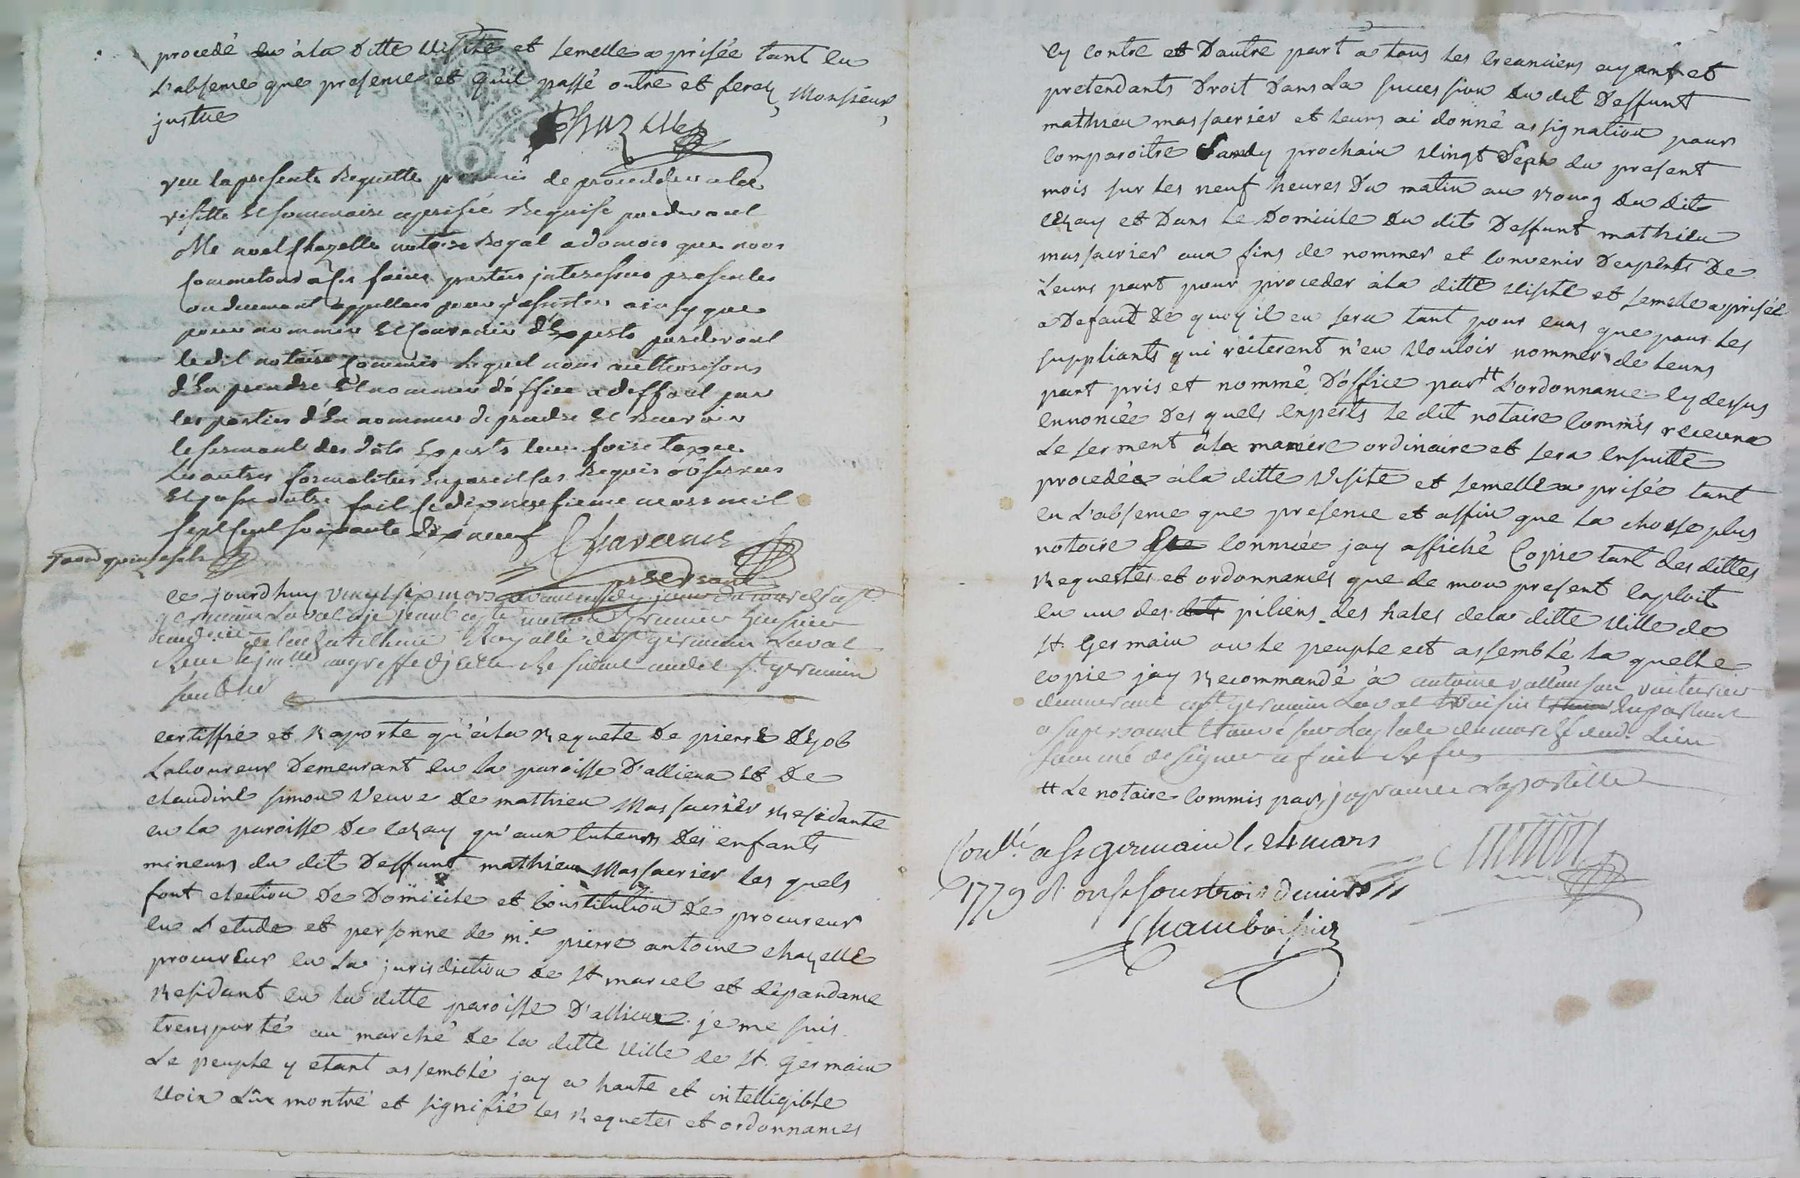 procedé en a la ditte visitte et semelle aprisée tant en
l'absence que presence et qu'il passé outre et ferez, Monsieur
justice
Chazelles
veu la presente Requette permis de proceder a la
visitte et sommaire aprisée Requise pardevant
Me noel Chazelle notaire Royal a donois que nous
commettons a ces fins parties interessées presentes
ou duement appellées pour y assister ainsy que
pour nommer et convenir d'Experts pardevant
le dit notaire commis lequel nous authorisons
d'En prendre et nommer d'office a deffaut par
les parties d'En nommer de prendre et Recevoir
le serment des dits Experts leur faire taxe
les autres formalités en pareil cas Requis observees
et passé outre fait ce dix neufieme mars mil
sept cent soixante dix neuf Chavanne
ce jourd'huy vingt six mars
germain Laval
de la Chatellenie Royalle de st germain Laval
Receu au greffe d'jcelle Residant audit st germain
soubsigné
certiffie et Raporte qu'a la Requete de pierre dejob
Laboureur Demeurant en la paroisse D'allieux et De
claudine simon veuve de mathieu Massacrier Residante
en la paroisse De cezay qu'aux tuteurs des enfants
mineurs du dit Deffunt mathieu Massacrier les quels
font election De Domicile et Constitution de procureur
en L'etude et personne de me. pierre antoine chazelle
procureur en La jurisdiction de St marcel et dépandance
Residant en la ditte paroisse D'allieux je me suis
transporté au marché de la ditte ville de St. germain
Le peuple y etant assemblé jay a haute et intelligible
voix Lû montré et signifié les Requetes et ordonnances
cy contre et D'autre part a tous les creanciers ayant et
pretendants Droit Dans La succession du dit Deffunt
mathieu massacrier et leurs ai donné assignation pour
comparoitre Samdy prochain vingt Sept du present
mois sur les neuf heures Du matin au Bourg du dit
cezay et Dans le Domicile du dit Deffunt mathieu
massacrier aux fins de nommer et convenir D'experts De
Leurs part pour proceder a la ditte visite et semelle aprisée
a Defaut De quoy il en sera tant pour eux que pour les
suppliants qui réiterent n'en vouloir nommer de leurs
part pris et nommé D'office par # L'ordonnance cy dessus
ennoncée Des quels experts le dit notaire commis recevra
Le serment a la maniere ordinaire et sera ensuitte
procedée a la ditte visite et semelle aprisée tant
en L'absence que presence et affin que la chose plus
notoire connüe jay affiché Copie tant des dittes
Requestes et ordonnances que de mon present exploit
en un des piliers des hales de la ditte ville de
St. Germain ou le peuple est assemblé la quelle
copie jay Recommandé à antoine
demeurant a st germain Laval
a sa personne trouvé sur la place du marché dud. Lieu
sommé de signer a fait Refus
# Le notaire Commis par, japrouve L'apostille
Conllé a St germain le 24 mars
1779 R onze sous trois deniers
Chamboissier